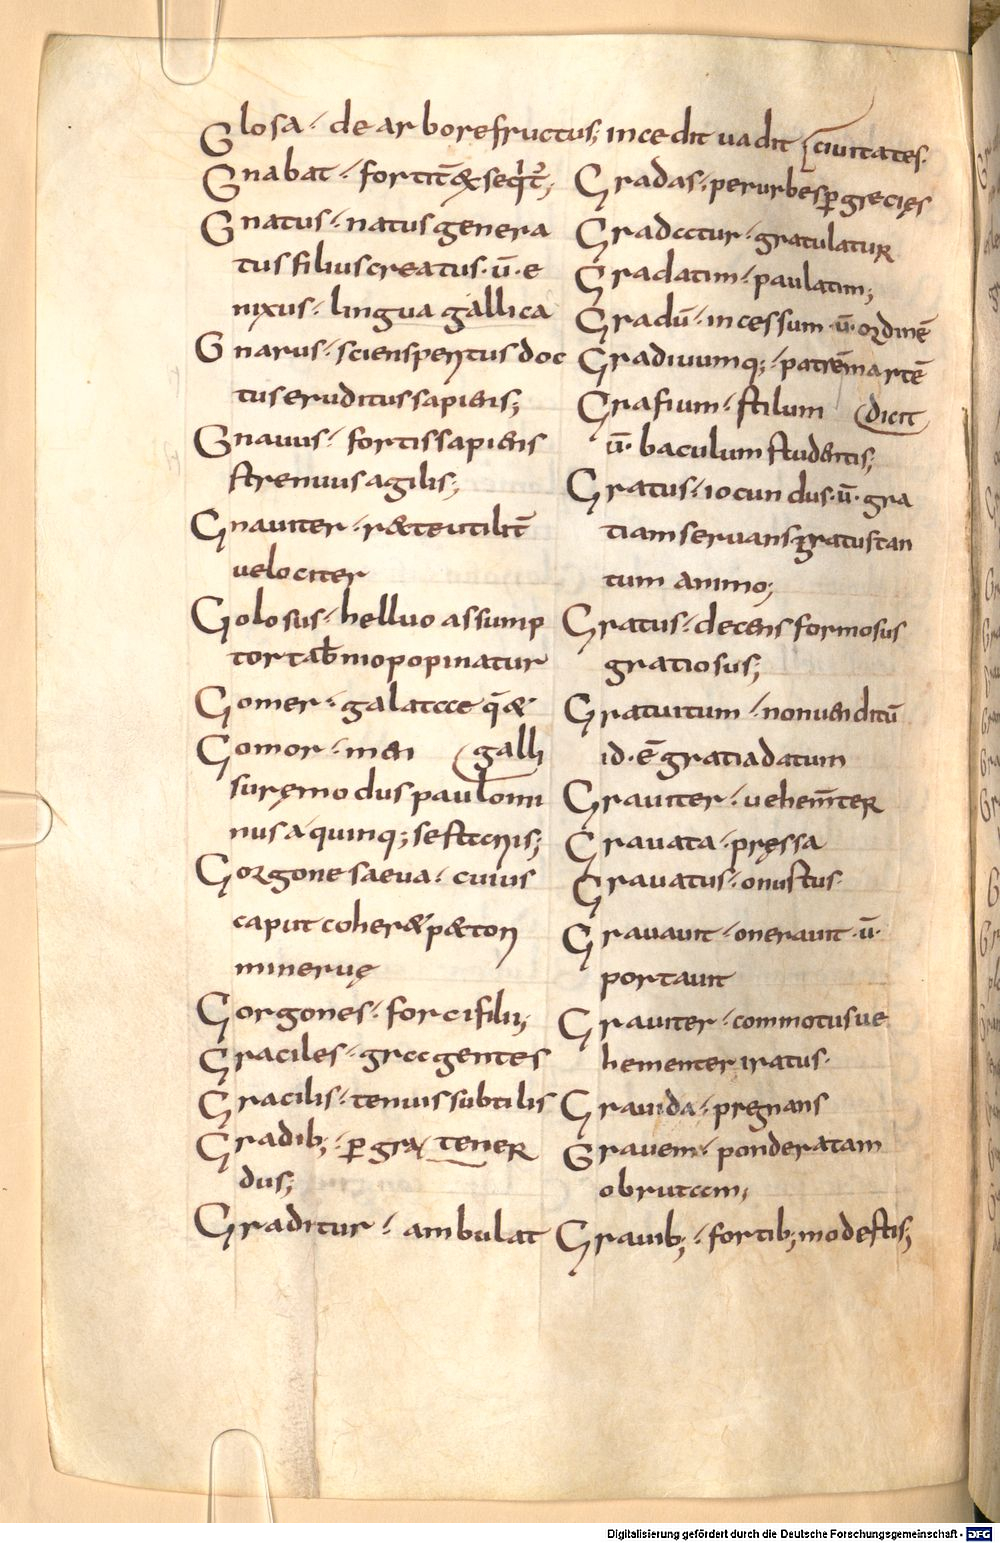 Glosa · de arbore fructus;
Gnabat · fortit̄ & seq̄t̄;
Gnatus · natus genera
tus filius creatus · ū · e
nixus · lingua gallica
Gnarus · sciens peritus doc
tus eruditus sapiens;
Gnauus · fortis sapiens
strenuus agilis;
Gnauiter · r&te utilit̄
velociter
Golosus · helluo assump
tor tab̄nio popinatur
Gomer · galatae q̄ &
Gomor · men galli
suręmodus paulomi
nus a quinq; sestariis;
Gorgone saeva · cuius
caput coher& p&tori
minervę
Gorgones · forci filii;
Graciles · graegentes
Gracilis · tenuis subtilis
Gradib; · ꝑ gra tener
dus;
Graditur · ambulat
incedit uadit ciuitates.
Gradas · per urbes ꝑ grecięs
Gradatur · gratulatur
Gradatim · paulatim;
Gradū · incessum · ū · ordinē
Gradiuumq; · patrē martē
Grafium · stilum dicit
ū · baculum studentis;
Gratus · iocundus · ū · gra
tiam servans gratus tan
tum animo;
Gratus · decens formosus
gratiosus;
Gratuitum · non venditū
id · ē gratia datum
Grauiter · vehem̄ter
Grauata · pręssa
Grauatus · onustus ·
Grauauit · onerauit · ū ·
portauit
Grauiter · commotus ue
hementer iratus ·
Grauida · pregnans
Grauem · ponderatam
obrutam;
Grauib; · fortib; modestis;
Digitalisierung gefördert durch die Deutsche Forschungsgemeinschaft - DFG